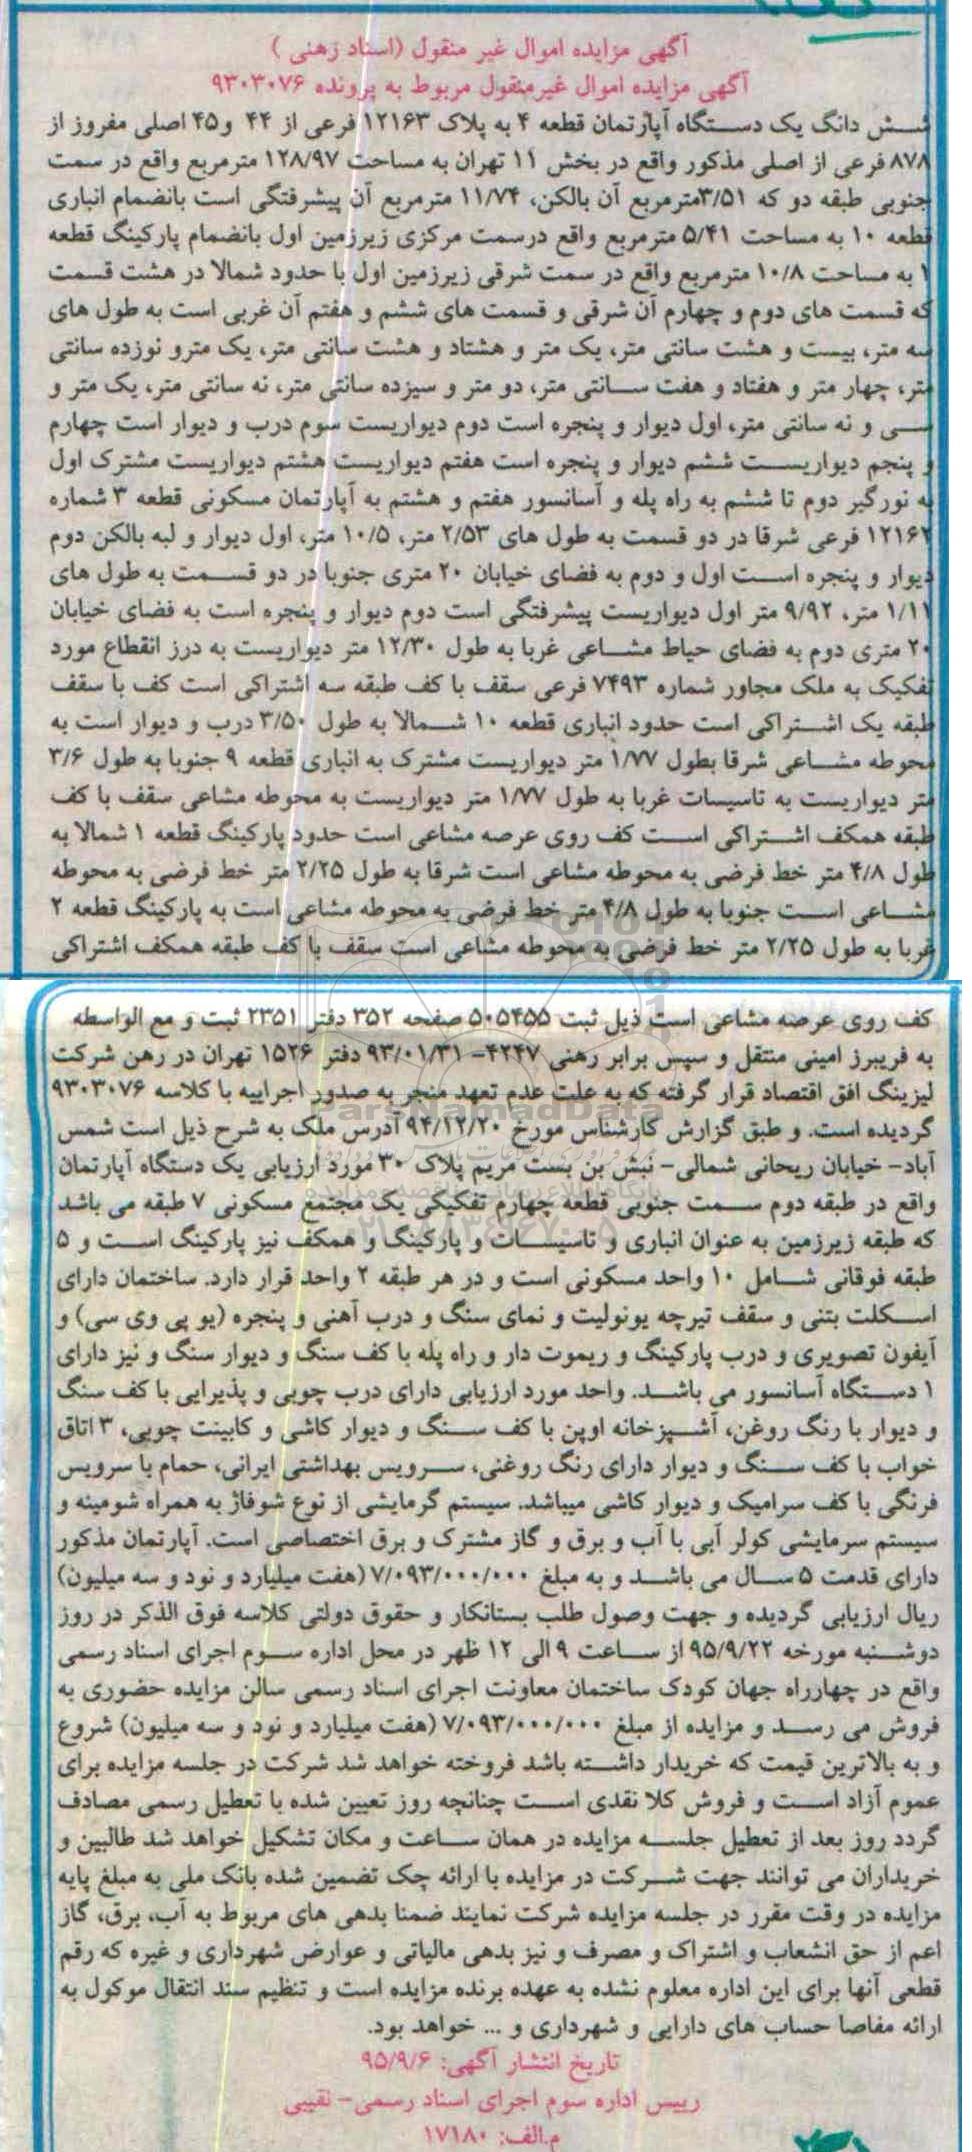 آگهی مزایده اموال غیر منقول (اسناد رهنی )
آگهی مزایده اموال غیرمنقول مربوط به پرونده ۹۳۰۳۰۷۶
شش دانگ یک دستگاه آپارتمان قطعه ۴ به پلاک ۱۲۱۶۳ فرعی از ۴۴ و۴۵ اصلی مفروز از
۸۷۸ فرعی از اصلی مذکور واقع در بخش ۱۱ تهران به مساحت ۱۲۸/۹۷ مترمربع واقع در سمت
جنوبی طبقه دو که ۳/۵۱مترمربع آن بالکن، ۱۱/۷۴ مترمربع آن پیشرفتگی است بانضمام انباری
قطعه ۱۰ به مساحت ۵/۴۱ مترمربع واقع درسمت مرکزی زیرزمین اول بانضمام پارکینگ قطعه
۱ به مساحت ۱۰/۸ مترمربع واقع در سمت شرقی زیرزمین اول با حدود شمالا در هشت قسمت
که قسمت های دوم و چهارم آن شرقی و قسمت های ششم و هفتم آن غربی است به طول های
سه متر، بیست و هشت سانتی متر، یک متر و هشتاد و هشت سانتی متر، یک مترو نوزده سانتی
متر، چهار متر و هفتاد و هفت سانتی متر، دو متر و سیزده سانتی متر، نه سانتی متر، یک متر و
سی و نه سانتی متر، اول دیوار و پنجره است دوم دیواریست سوم درب و دیوار است چهارم
و پنجم دیواریست ششم دیوار و پنجره است هفتم دیواریست هشتم دیواریست مشترک اول
به نورگیر دوم تا ششم به راه پله و آسانسور هفتم و هشتم به آپارتمان مسکونی قطعه ۳ شماره
۱۲۱۶۲ فرعی شرقا در دو قسمت به طول های ۲/۵۳ متر، ۱۰/۵ متر، اول دیوار و لبه بالکن دوم
دیوار و پنجره است اول و دوم به فضای خیابان ۲۰ متری جنوبا در دو قسمت به طول های
۱/۱۱ متر، ۹/۹۲ متر اول دیواریست پیشرفتگی است دوم دیوار و پنجره است به فضای خیابان
۲۰ متری دوم به فضای حیاط مشاعی غربا به طول ۱۲/۳۰ متر دیواریست به درز انقطاع مورد
تفکیک به ملک مجاور شماره ۷۴۹۳ فرعی سقف با کف طبقه سه اشتراکی است کف با سقف
طبقه یک اشتراکی است حدود انباری قطعه ۱۰ شمالا به طول ۳/۵۰ درب و دیوار است به
محوطه مشاعی شرقا بطول ۱/۷۷ متر دیواریست مشترک به انباری قطعه ۹ جنوبا به طول ۳/۶
متر دیواریست به تاسیسات غربا به طول ۱/۷۷ متر دیواریست به محوطه مشاعی سقف با کف
طبقه همکف اشتراکی است کف روی عرصه مشاعی است حدود پارکینگ قطعه ۱ شمالا به
طول ۴/۸ متر خط فرضی به محوطه مشاعی است شرقا به طول ۲/۲۵ متر خط فرضی به محوطه
مشاعی است جنوبا به طول ۴/۸ متر خط فرضی به محوطه مشاعی است به پارکینگ قطعه ۲
غربا به طول ۲/۲۵ متر خط فرضی به محوطه مشاعی است سقف با کف طبقه همکف اشتراکی
کف روی عرصه مشاعی است ذیل ثبت ۵۰۵۴۵۵ صفحه ۳۵۲ دفتر ۲۳۵۱ ثبت و مع الواسطه
به فریبرز امینی منتقل و سپس برابر رهنی ۴۲۴۷- ۹۳/۰۱/۳۱ دفتر ۱۵۲۶ تهران در رهن شرکت
لیزینگ افق اقتصاد قرار گرفته که به علت عدم تعهد منجر به صدور اجراییه با کلاسه ۹۳۰۳۰۷۶
ParsNamadData
گردیده است. و طبق گزارش کارشناس مورخ ۹۴/۱۲/۲۰ آدرس ملک به شرح ذیل است شمس
آباد- خیابان ریحانی شمالی- نبش بن بست مریم پلاک ۳۰ مورد ارزیابی یک دستگاه آپارتمان
واقع در طبقه دوم سمت جنوبی قطعه چهارم تفکیکی یک مجتمع مسکونی ۷ طبقه می باشد
که طبقه زیرزمین به عنوان انباری و تاسیسات و پارکینگ و همکف نیز پارکینگ است و ۵
طبقه فوقانی شامل ۱۰ واحد مسکونی است و در هر طبقه ۲ واحد قرار دارد. ساختمان دارای
اسکلت بتنی و سقف تیرچه یونولیت و نمای سنگ و درب آهنی و پنجره (یو پی وی سی) و
آیفون تصویری و درب پارکینگ و ریموت دار و راه پله با کف سنگ و دیوار سنگ و نیز دارای
۱ دستگاه آسانسور می باشد. واحد مورد ارزیابی دارای درب چوبی و پذیرایی با کف سنگ
و دیوار با رنگ روغن، آشپزخانه اوپن با کف سنگ و دیوار کاشی و کابینت چوبی، ۳ اتاق
خواب با کف سنگ و دیوار دارای رنگ روغنی، سرویس بهداشتی ایرانی، حمام با سرویس
فرنگی با کف سرامیک و دیوار کاشی میباشد. سیستم گرمایشی از نوع شوفاژ به همراه شومینه و
سیستم سرمایشی کولر آبی با آب و برق و گاز مشترک و برق اختصاصی است. آپارتمان مذکور
دارای قدمت ۵ سال می باشد و به مبلغ ۷/۰۹۳/۰۰۰/۰۰۰ (هفت میلیارد و نود و سه میلیون)
ریال ارزیابی گردیده و جهت وصول طلب بستانکار و حقوق دولتی کلاسه فوق الذکر در روز
دوشنبه مورخه ۹۵/۹/۲۲ از ساعت ۹ الی ۱۲ ظهر در محل اداره سوم اجرای اسناد رسمی
واقع در چهارراه جهان کودک ساختمان معاونت اجرای اسناد رسمی سالن مزایده حضوری به
فروش می رسد و مزایده از مبلغ ۷/۰۹۳/۰۰۰/۰۰۰ (هفت میلیارد و نود و سه میلیون) شروع
و به بالاترین قیمت که خریدار داشته باشد فروخته خواهد شد شرکت در جلسه مزایده برای
عموم آزاد است و فروش کلا نقدی است چنانچه روز تعیین شده با تعطیل رسمی مصادف
گردد روز بعد از تعطیل جلسه مزایده در همان ساعت و مکان تشکیل خواهد شد طالبین و
خریداران می توانند جهت شرکت در مزایده با ارائه چک تضمین شده بانک ملی به مبلغ پایه
مزایده در وقت مقرر در جلسه مزایده شرکت نمایند ضمنا بدهی های مربوط به آب، برق، گاز
اعم از حق انشعاب و اشتراک و مصرف و نیز بدهی مالیاتی و عوارض شهرداری و غیره که رقم
قطعی آنها برای این اداره معلوم نشده به عهده برنده مزایده است و تنظیم سند انتقال موکول به
ارائه مفاصا حساب های دارایی و شهرداری و ... خواهد بود.
تاریخ انتشار آگهی: ۹۵/۹/۶
رییس اداره سوم اجرای اسناد رسمی- نقیبی
م.الف: ۱۷۱۸۰